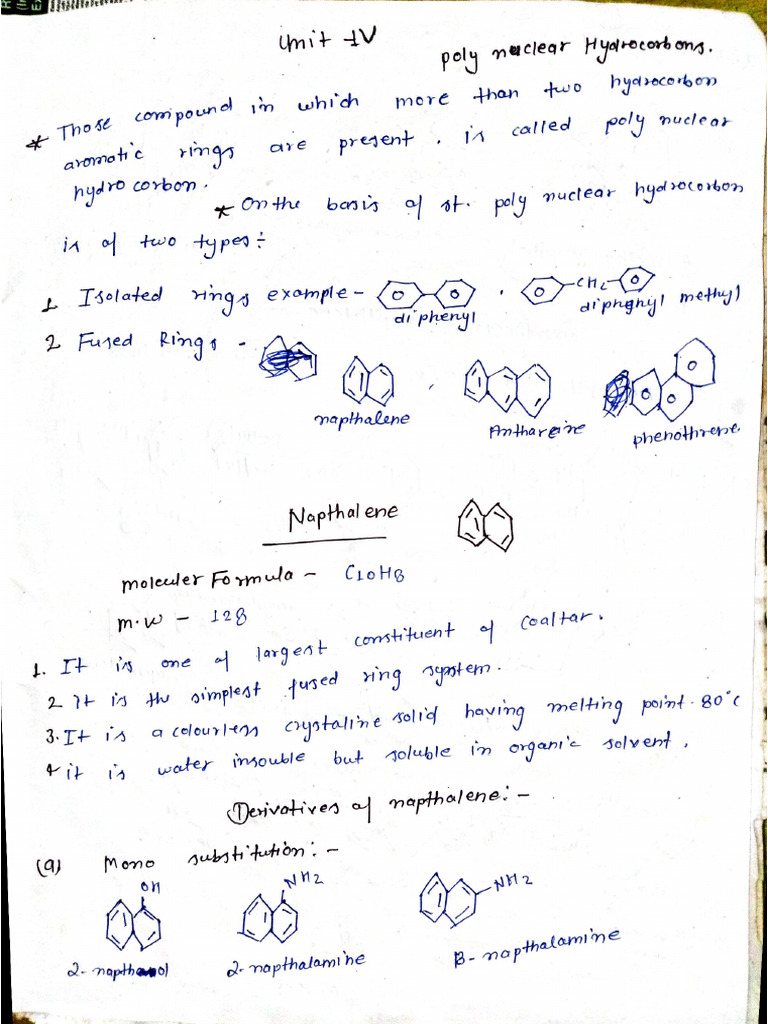 Unit -IV
poly nuclear Hydrocorbons.
* Those compound in which more than two hydrocorbon
aromatic rings are present. is called poly nuclear
hydrocorbon.
* On the basis of st. poly nuclear hydrocorbon
is of two types÷
1 Isolated rings example - , CH2
diphenyl diphenyl methyl
2 Fused Rings -
napthalene , Anthareine phenothrene
Napthalene
moleculer Formula - C10H8
m.w - 128
1. It is one of largest constituent of coaltar.
2 It is the simplest fused ring system.
3. It is a colourless crystaline solid having melting point. 80°C
4 it is water insouble but soluble in organic solvent.
Derivatives of napthalene:-
(a) Mono substitution:-
OH NH2 NH2
2-napthanol 2-napthalamine B-napthalamine